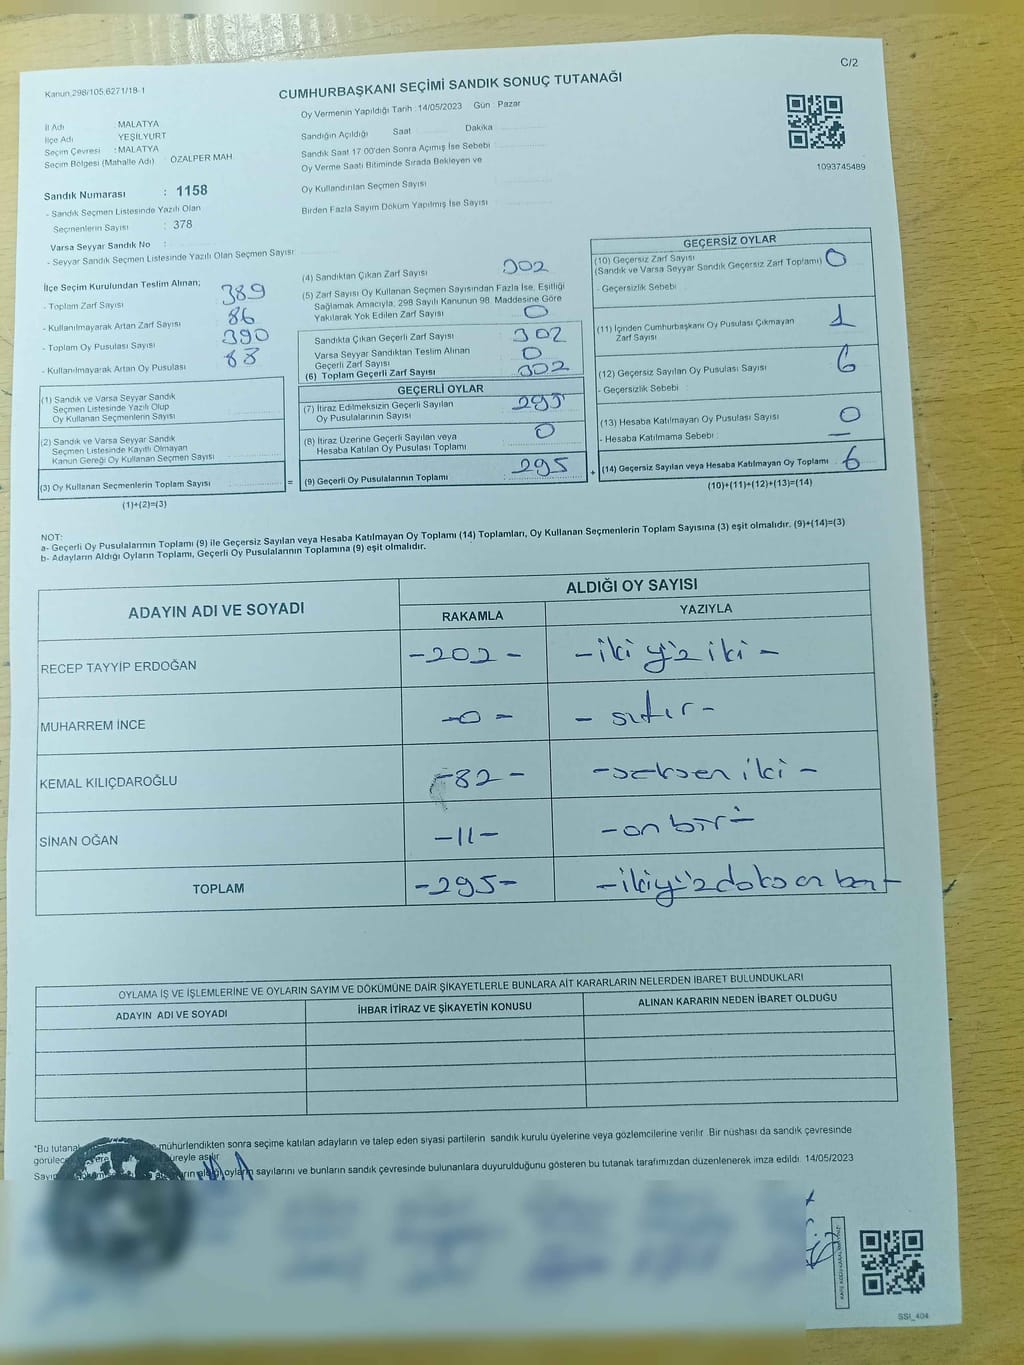 C/2
Kanun 298/105,6271/18-1
CUMHURBAŞKANI SEÇİMİ SANDIK SONUÇ TUTANAĞI
Oy Vermenin Yapıldığı Tarih : 14/05/2023 Gün : Pazar
İl Adı : MALATYA
İlçe Adı YEŞİLYURT
Seçim Çevresi : MALATYA
Seçim Bölgesi (Mahalle Adı) : ÖZALPER MAH.
Sandığın Açıldığı Saat Dakika
Sandık Saat 17:00'den Sonra Açılmış İse Sebebi
Oy Verme Saati Bitiminde Sırada Bekleyen ve
Oy Kullandırılan Seçmen Sayısı
Birden Fazla Sayım Döküm Yapılmış İse Sayısı
1093745489
Sandık Numarası : 1158
- Sandık Seçmen Listesinde Yazılı Olan
Seçmenlerin Sayısı : 378
Varsa Seyyar Sandık No :
- Seyyar Sandık Seçmen Listesinde Yazılı Olan Seçmen Sayısı
İlçe Seçim Kurulundan Teslim Alınan;
- Toplam Zarf Sayısı 389
- Kullanılmayarak Artan Zarf Sayısı 86
- Toplam Oy Pusulası Sayısı 390
- Kullanılmayarak Artan Oy Pusulası
(1) Sandık ve Varsa Seyyar Sandık
Seçmen Listesinde Yazılı Olup
Oy Kullanan Seçmenlerin Sayısı
(2) Sandık ve Varsa Seyyar Sandık
Seçmen Listesinde Kayıtlı Olmayan
Kanun Gereği Oy Kullanan Seçmen Sayısı
(3) Oy Kullanan Seçmenlerin Toplam Sayısı =
(1)+(2)=(3)
(4) Sandıktan Çıkan Zarf Sayısı 302
(5) Zarf Sayısı Oy Kullanan Seçmen Sayısından Fazla İse, Eşitliği
Sağlamak Amacıyla, 298 Sayılı Kanunun 98. Maddesine Göre
Yakılarak Yok Edilen Zarf Sayısı 0
Sandıkta Çıkan Geçerli Zarf Sayısı 302
Varsa Seyyar Sandıktan Teslim Alınan
Geçerli Zarf Sayısı 0
(6) Toplam Geçerli Zarf Sayısı 302
GEÇERLİ OYLAR
(7) İtiraz Edilmeksizin Geçerli Sayılan
Oy Pusulalarının Sayısı 295
(8) İtiraz Üzerine Geçerli Sayılan veya
Hesaba Katılan Oy Pusulası Toplamı 0
(9) Geçerli Oy Pusulalarının Toplamı 295 +
GEÇERSİZ OYLAR
(10) Geçersiz Zarf Sayısı
(Sandık ve Varsa Seyyar Sandık Geçersiz Zarf Toplamı) 0
- Geçersizlik Sebebi :
(11) İçinden Cumhurbaşkanı Oy Pusulası Çıkmayan
Zarf Sayısı 1
(12) Geçersiz Sayılan Oy Pusulası Sayısı 6
- Geçersizlik Sebebi :
(13) Hesaba Katılmayan Oy Pusulası Sayısı 0
- Hesaba Katılmama Sebebi : —
(14) Geçersiz Sayılan veya Hesaba Katılmayan Oy Toplamı 6
(10)+(11)+(12)+(13)=(14)
NOT:
a- Geçerli Oy Pusulalarının Toplamı (9) ile Geçersiz Sayılan veya Hesaba Katılmayan Oy Toplamı (14) Toplamları, Oy Kullanan Seçmenlerin Toplam Sayısına (3) eşit olmalıdır. (9)+(14)=(3)
b- Adayların Aldığı Oyların Toplamı, Geçerli Oy Pusulalarının Toplamına (9) eşit olmalıdır.
ADAYIN ADI VE SOYADI ALDIĞI OY SAYISI
RAKAMLA YAZIYLA
RECEP TAYYİP ERDOĞAN -202- -iki yüz iki-
MUHARREM İNCE -0- -sıfır-
KEMAL KILIÇDAROĞLU -82- -seksen iki-
SİNAN OĞAN -11- -on bir-
TOPLAM -295- -ikiyüzdoksan beş-
OYLAMA İŞ VE İŞLEMLERİNE VE OYLARIN SAYIM VE DÖKÜMÜNE DAİR ŞİKAYETLERLE BUNLARA AİT KARARLARIN NELERDEN İBARET BULUNDUKLARI
ADAYIN ADI VE SOYADI İHBAR İTİRAZ VE ŞİKAYETİN KONUSU ALINAN KARARIN NEDEN İBARET OLDUĞU
*Bu mühürlendikten sonra seçime katılan adayların ve talep eden siyasi partilerin sandık kurulu üyelerine veya gözlemcilerine verilir. Bir nüshası da sandık çevresinde
süreyle asılır.
oyların sayılarını ve bunların sandık çevresinde bulunanlara duyurulduğunu gösteren bu tutanak tarafımızdan düzenlenerek imza edildi. 14/05/2023
SSI_404